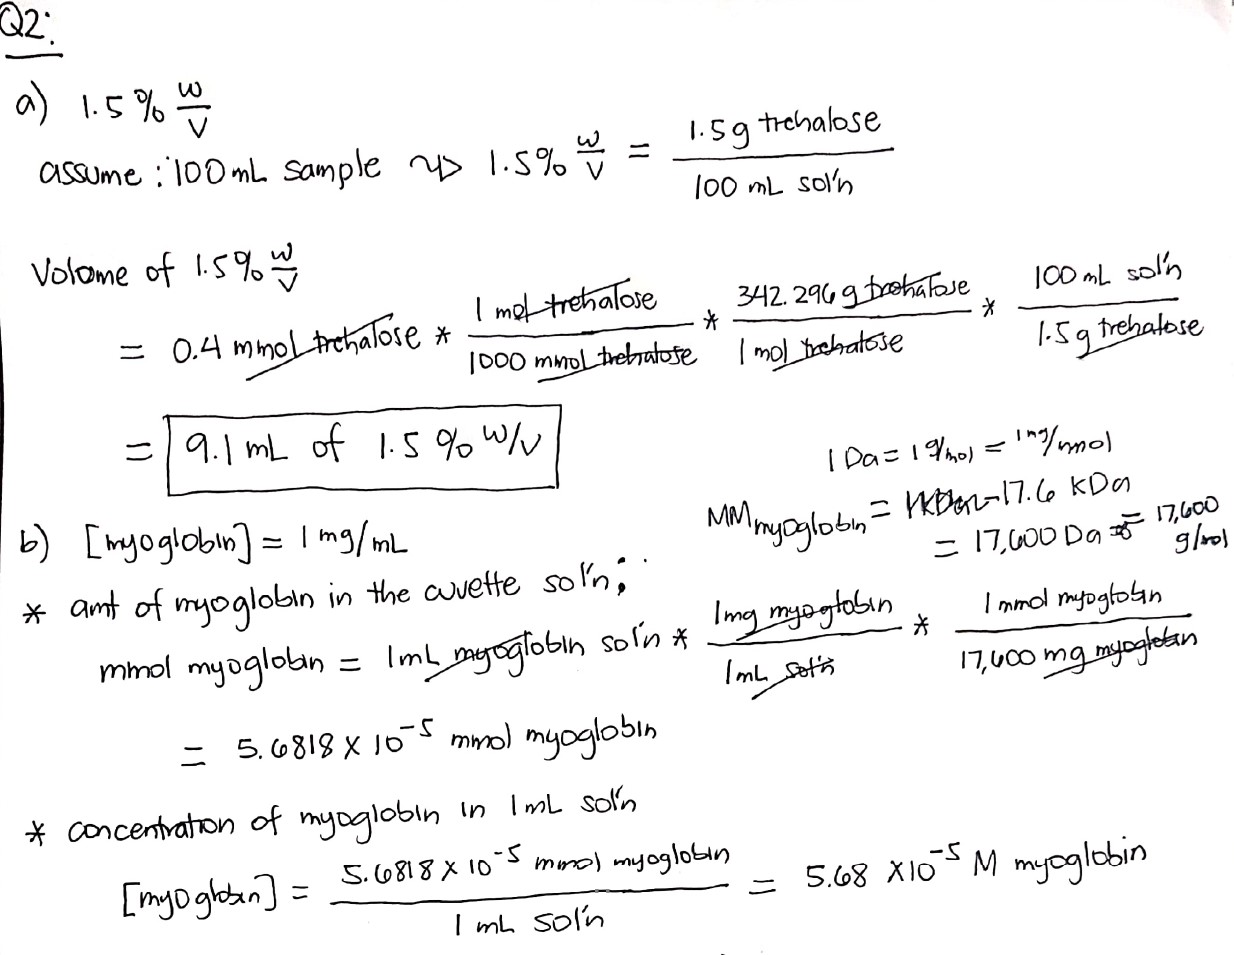 Q2:
a) 1.5% w/v
assume: 100 mL sample ⇝ 1.5% w/v = 1.5 g trehalose / 100 mL sol'n
Volume of 1.5% w/v
= 0.4 mmol trehalose * 1 mol trehalose / 1000 mmol trehalose * 342.296 g trehalose / 1 mol trehalose * 100 mL sol'n / 1.5 g trehalose
= 9.1 mL of 1.5% w/v
1 Da = 1 g/mol = 1 mg/mmol
MM myoglobin = 17.6 KDa
= 17,600 Da = 17,600 g/mol
b) [myoglobin] = 1 mg/mL
* amt of myoglobin in the cuvette sol'n:
mmol myoglobin = 1 mL myoglobin sol'n * 1 mg myoglobin / 1 mL sol'n * 1 mmol myoglobin / 17,600 mg myoglobin
= 5.6818 x 10⁻⁵ mmol myoglobin
* concentration of myoglobin in 1 mL sol'n
[myoglobin] = 5.6818 x 10⁻⁵ mmol myoglobin / 1 mL sol'n = 5.68 x10⁻⁵ M myoglobin